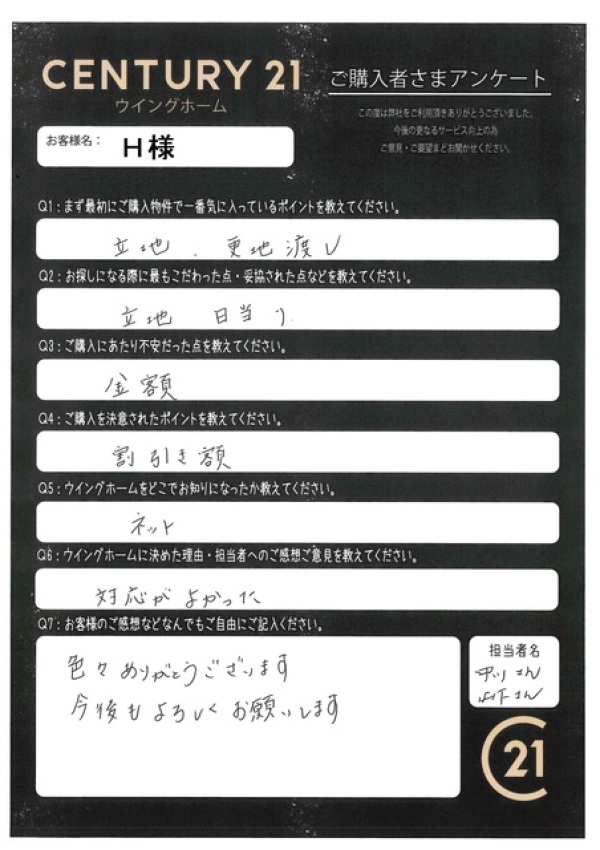 CENTURY 21
ウイングホーム
ご購入者さまアンケート
この度は弊社をご利用頂きありがとうございました。
今後の更なるサービス向上の為
ご意見・ご要望までお聞かせください。
お客様名： H様
Q1：まず最初にご購入物件で一番気に入っているポイントを教えてください。
立地、更地渡し
Q2：お探しになる際に最もこだわった点・妥協された点などを教えてください。
立地 日当り
Q3：ご購入にあたり不安だった点を教えてください。
金額
Q4：ご購入を決意されたポイントを教えてください。
割引き額
Q5：ウイングホームをどこでお知りになったか教えてください。
ネット
Q6：ウイングホームに決めた理由・担当者へのご感想ご意見を教えてください。
対応がよかった
Q7：お客様のご感想などなんでもご自由にご記入ください。
色々ありがとうございます
今後もよろしくお願いします
担当者名
さん
山下さん
C21